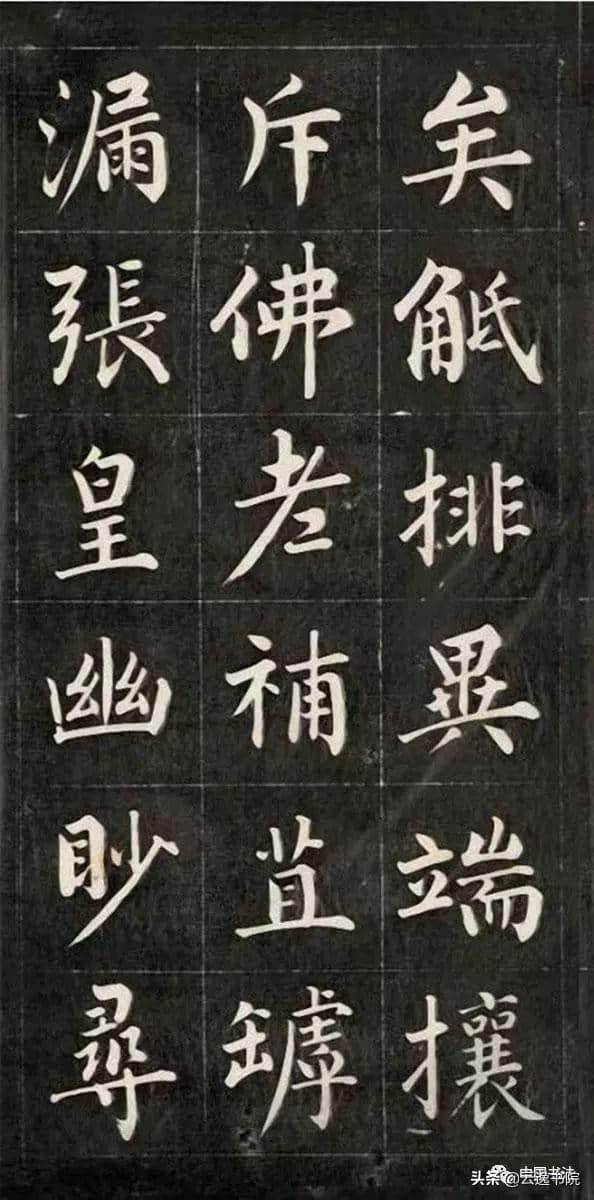 矣觝排異端攘
斥佛老補苴罅
漏張皇幽眇尋
中国书法
头条@云逸书院